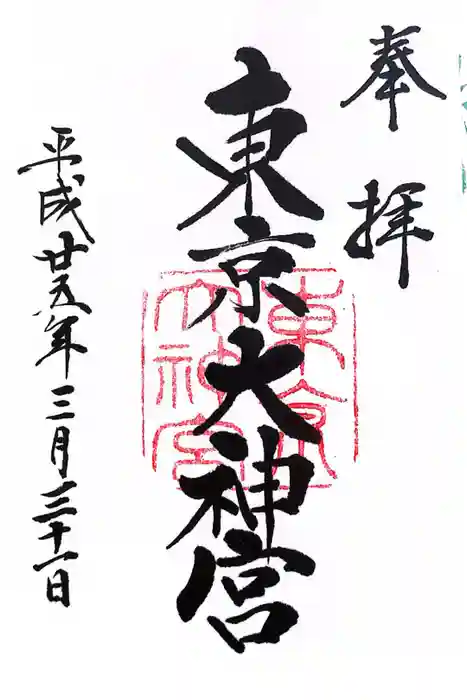 奉拝
東京大神宮
東京大神宮
平成廿五年三月三十一日